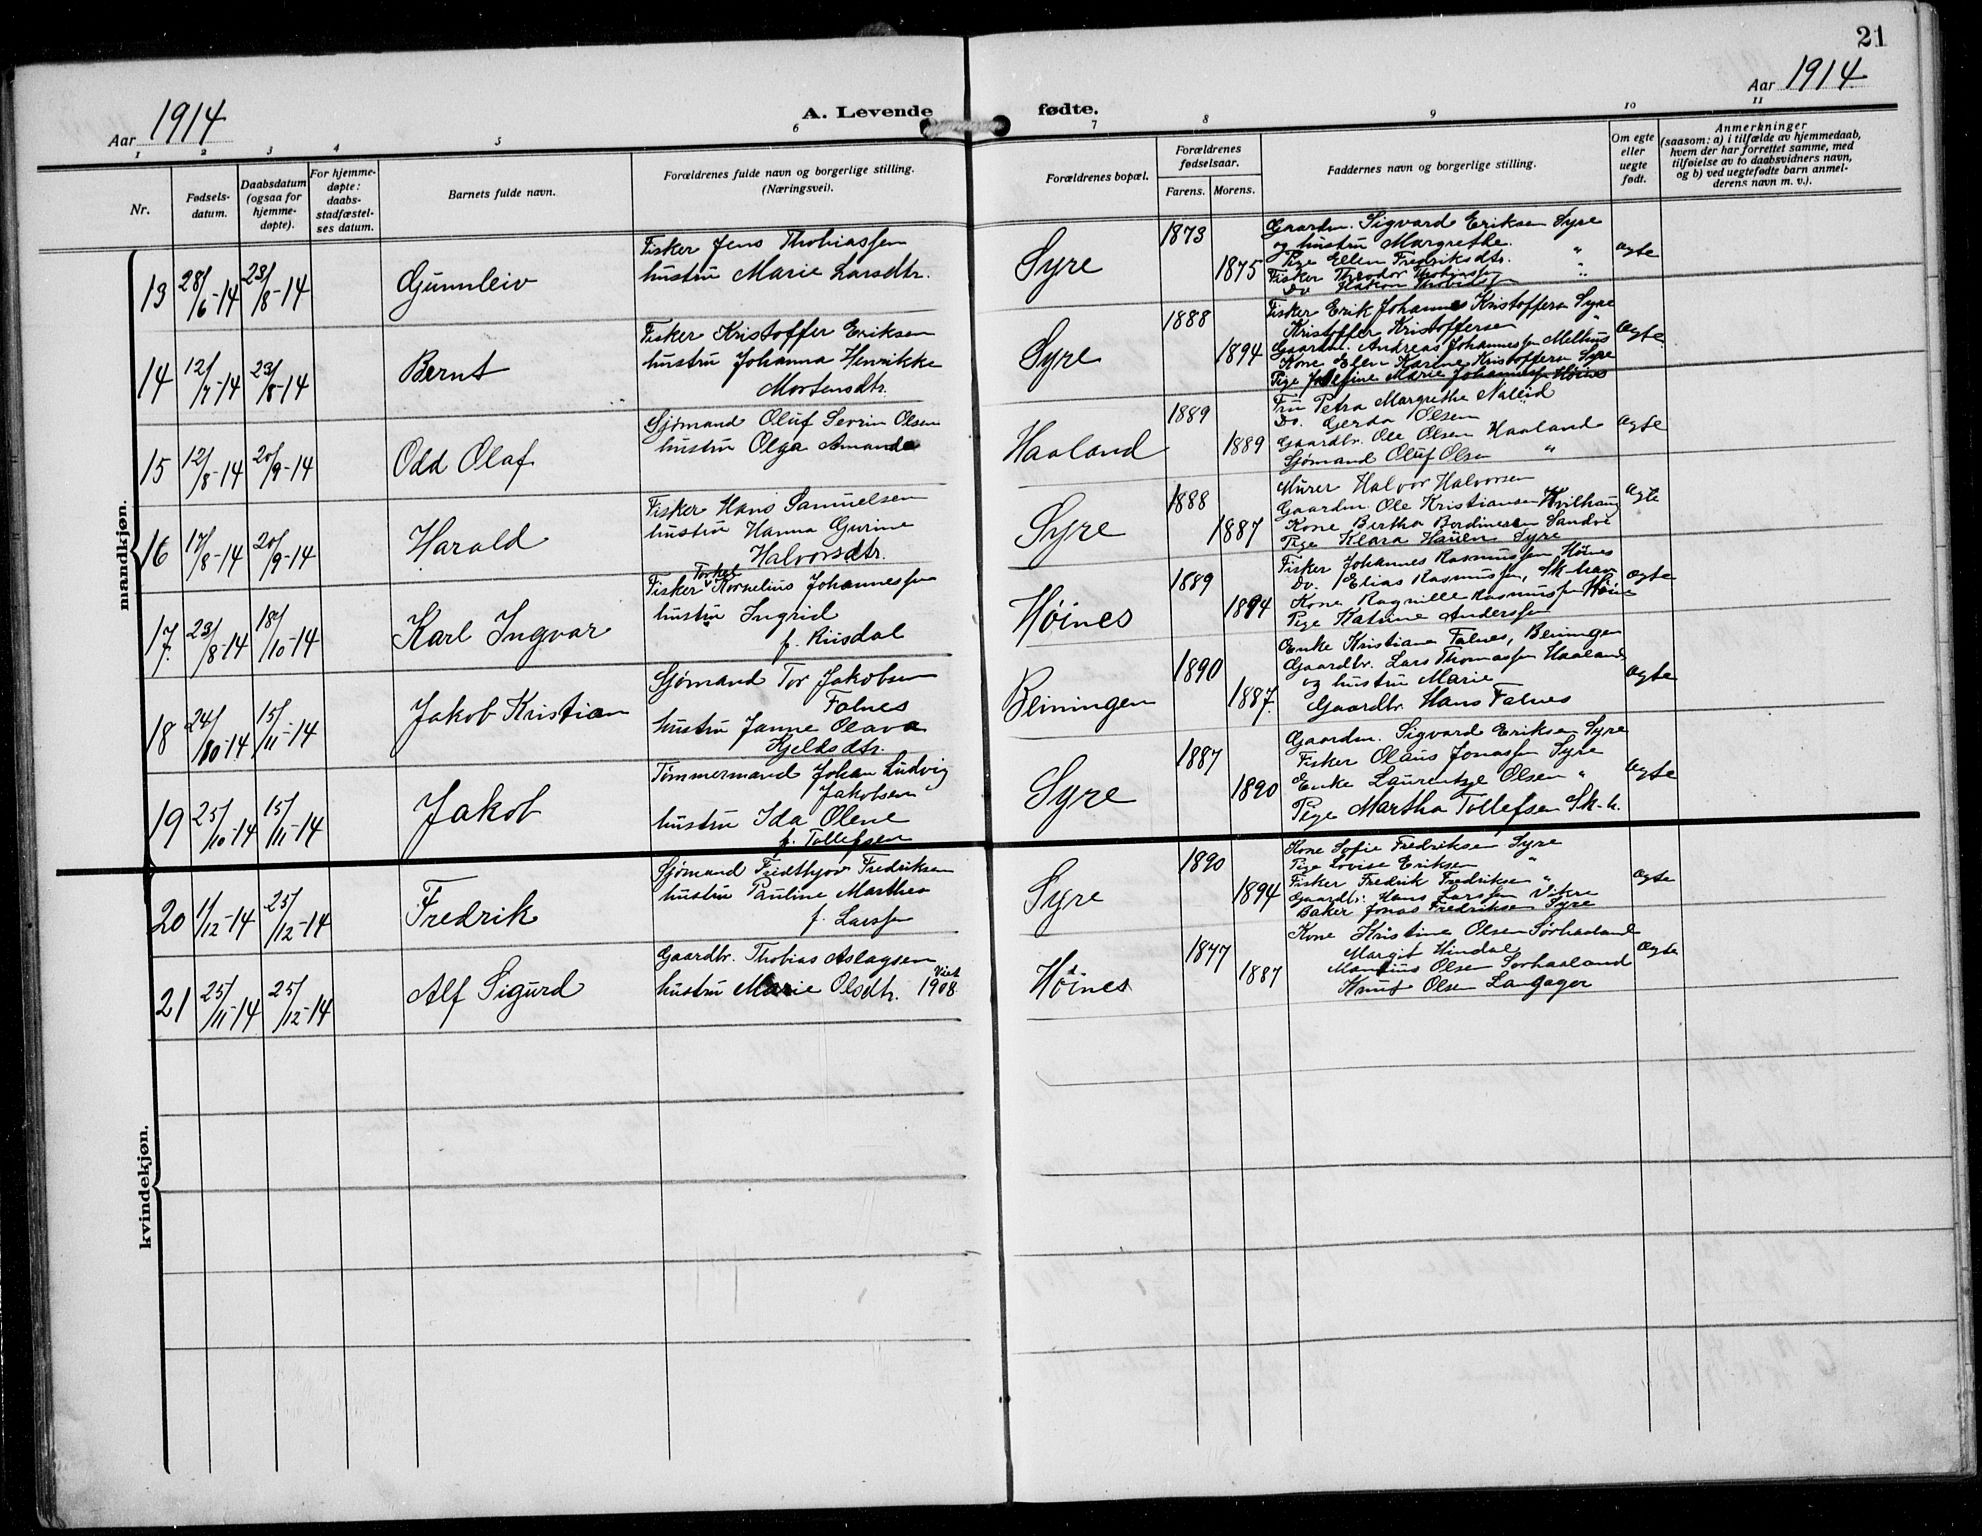 21
Aar 1914
A. Levende
fødte.
Aar 1914
1 2 3 4 5 6 7 8 9 10 11
Nr.
Fødsels-
datum.
Daabsdatum
(ogsaa for
hjemme-
døpte).
For hjemme-
døpte:
daabs-
stadfæstel-
ses datum.
Barnets fulde navn.
Forældrenes fulde navn og borgerlige stilling.
(Næringsvei).
Forældrenes bopæl.
Forældrenes
fødselsaar.
Farens. Morens.
Faddernes navn og borgerlige stilling.
Om egte
eller
uegte
født.
Anmerkninger
(saasom: a) i tilfælde av hjemmedaab,
hvem der har forrettet samme, med
tilføielse av to daabsvidners navn,
og b) ved uegtefødte barn anmel-
derens navn m. v.).
mandkjøn.
13 28/6-14 23/8-14 Gunnleiv
Fisker Jens Thobiassen
hustru Marie Larsdtr.
Syre 1873 1875
Gaardm. Sigvard Eriksen Syre
og hustru Margrethe. "
Pige Ellen Fredriksdtr. "
Fisker Theodor Thobiassen "
Do Haakon Thobiassen
ægte
14 12/7-14 23/8-14 Bernt
Fisker Kristoffer Eriksen
hustru Johanna Henrikke
Mortensdtr.
Syre 1888 1894
Fisker Erik Johannes Kristoffersen Syre
Kristoffer Kristoffersen "
Gaardm. Andreas Johannessen Melhus
Kone Ellen Karine Kristoffersen Syre
Pige Josefine Marie Johannessen Høines
ægte
15 12/8-14 20/9-14 Odd Olaf
Sjømand Oluf Sevrin Olsen
hustru Olga Amanda
Haaland 1889 1889
Fru Petra Margrethe Naleid
Do. Gerda Olsen
Gaardbr. Ole Olsen Haaland
Sjømand Oluf Olsen "
ægte
16 17/8-14 20/9-14 Harald
Fisker Hans Samuelsen
hustru Hanna Gurine
Halvorsdtr.
Syre 1888 1887
Murer Halvor Halvorsen
Gaardm Ole Kristiansen Kvilhaug
Kone Bertha Berdinesen Sandve
Pige Klara Hauen Syre
ægte
17. 23/8-14 18/10-14 Karl Ingvar
Torkel
Fisker Kornelius Johannessen
hustru Ingrid
f. Riisdal
Høines 1889 1894
Fisker Johannes Rasmussen Høines
Do. Elias Rasmussen, Sk-havn
Kone Ragnille Rasmussen Høine
Pige Katrine Anderssen
ægte
18 24/10-14 15/11-14 Jakob Kristian
Sjømand Tor Jakobsen
Falnes
hustru Janne Olava
Kjeldsdtr.
Beiningen 1890 1887.
Enke Kristiane Falnes, Beiningen
Gaardbr. Lars Thomassen Haaland
og hustru Marie
Gaardbr. Hans Falnes
ægte
19 25/10-14 15/11-14 Jakob
Tømmermand Johan Ludvig
Jakobsen
hustru Ida Olene
f. Tollefsen
Syre 1887 1890
Gaardm. Sigvard Eriksen Syre
Fisker Olaus Jonassen Syre
Enke Laurentze Olsen "
Pige Martha Tollefsen Sk-h.
ægte
20 11/12-14 25/12-14 Fredrik
Sjømand Fridthjov Fredriksen
hustru Pauline Marthea
f. Larssen
Syre 1890 1894
Kone Sofie Fredriksen Syre
Pige Lovise Eriksen "
Fisker Fredrik Fredriksen "
Gaardbr. Hans Larssen Vikre
Baker Jonas Fredriksen Syre
ægte
21 25/11-14 25/12-14 Alf Sigurd
Gaardbr. Thobias Aslagsen
hustru Marie Olsdtr. Viet 1908
Høines 1877 1887
Kone Kristine Olsen Sørhaaland
Margit Hindal
Mantius Olsen Sørhaaland
Knut Olsen Langager
Ægte
kvindekjøn.